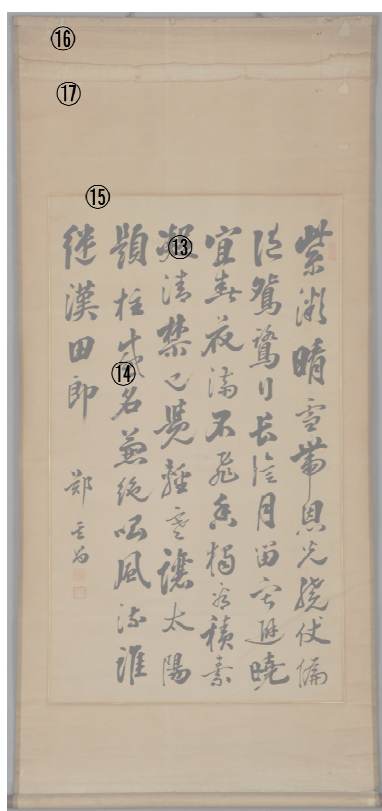 ⑯
⑰
⑮
⑬
⑭
紫微晴雪帶恩光繞仗偏
隨鴛鷺行長信月留寧避曉
宜春花滿不飛香獨看積素
凝清禁已覺輕寒讓太陽
題柱盛名兼絶唱風流誰
継漢田郎
鄭